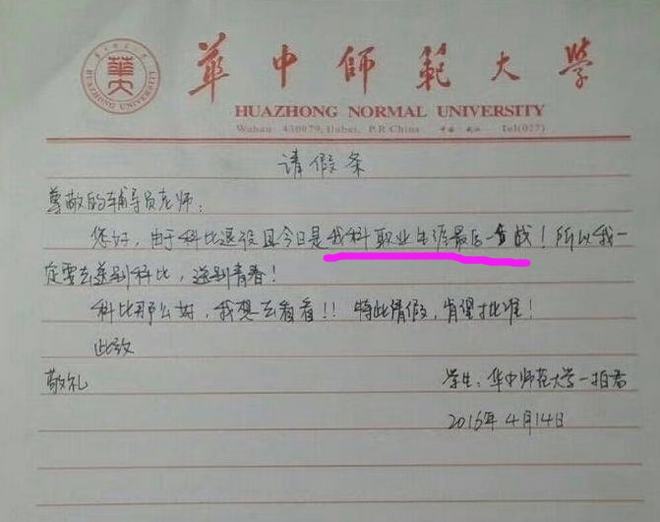 華中師範大學
HUAZHONG NORMAL UNIVERSITY
HUAZHONG UNIVERSITY
Wuhan 430079, Hubei, P.R.China 中国 武汉 Tel(027)
请假条
尊敬的辅导员老师：
您好，由于科比退役且今日是我科职业生涯最后一战！所以我一
定要去送别科比，送别青春！
科比那么好，我想去看看！！特此请假，肯望批准！
此致
敬礼
学生：华中师范大学一拍君
2016年4月14日